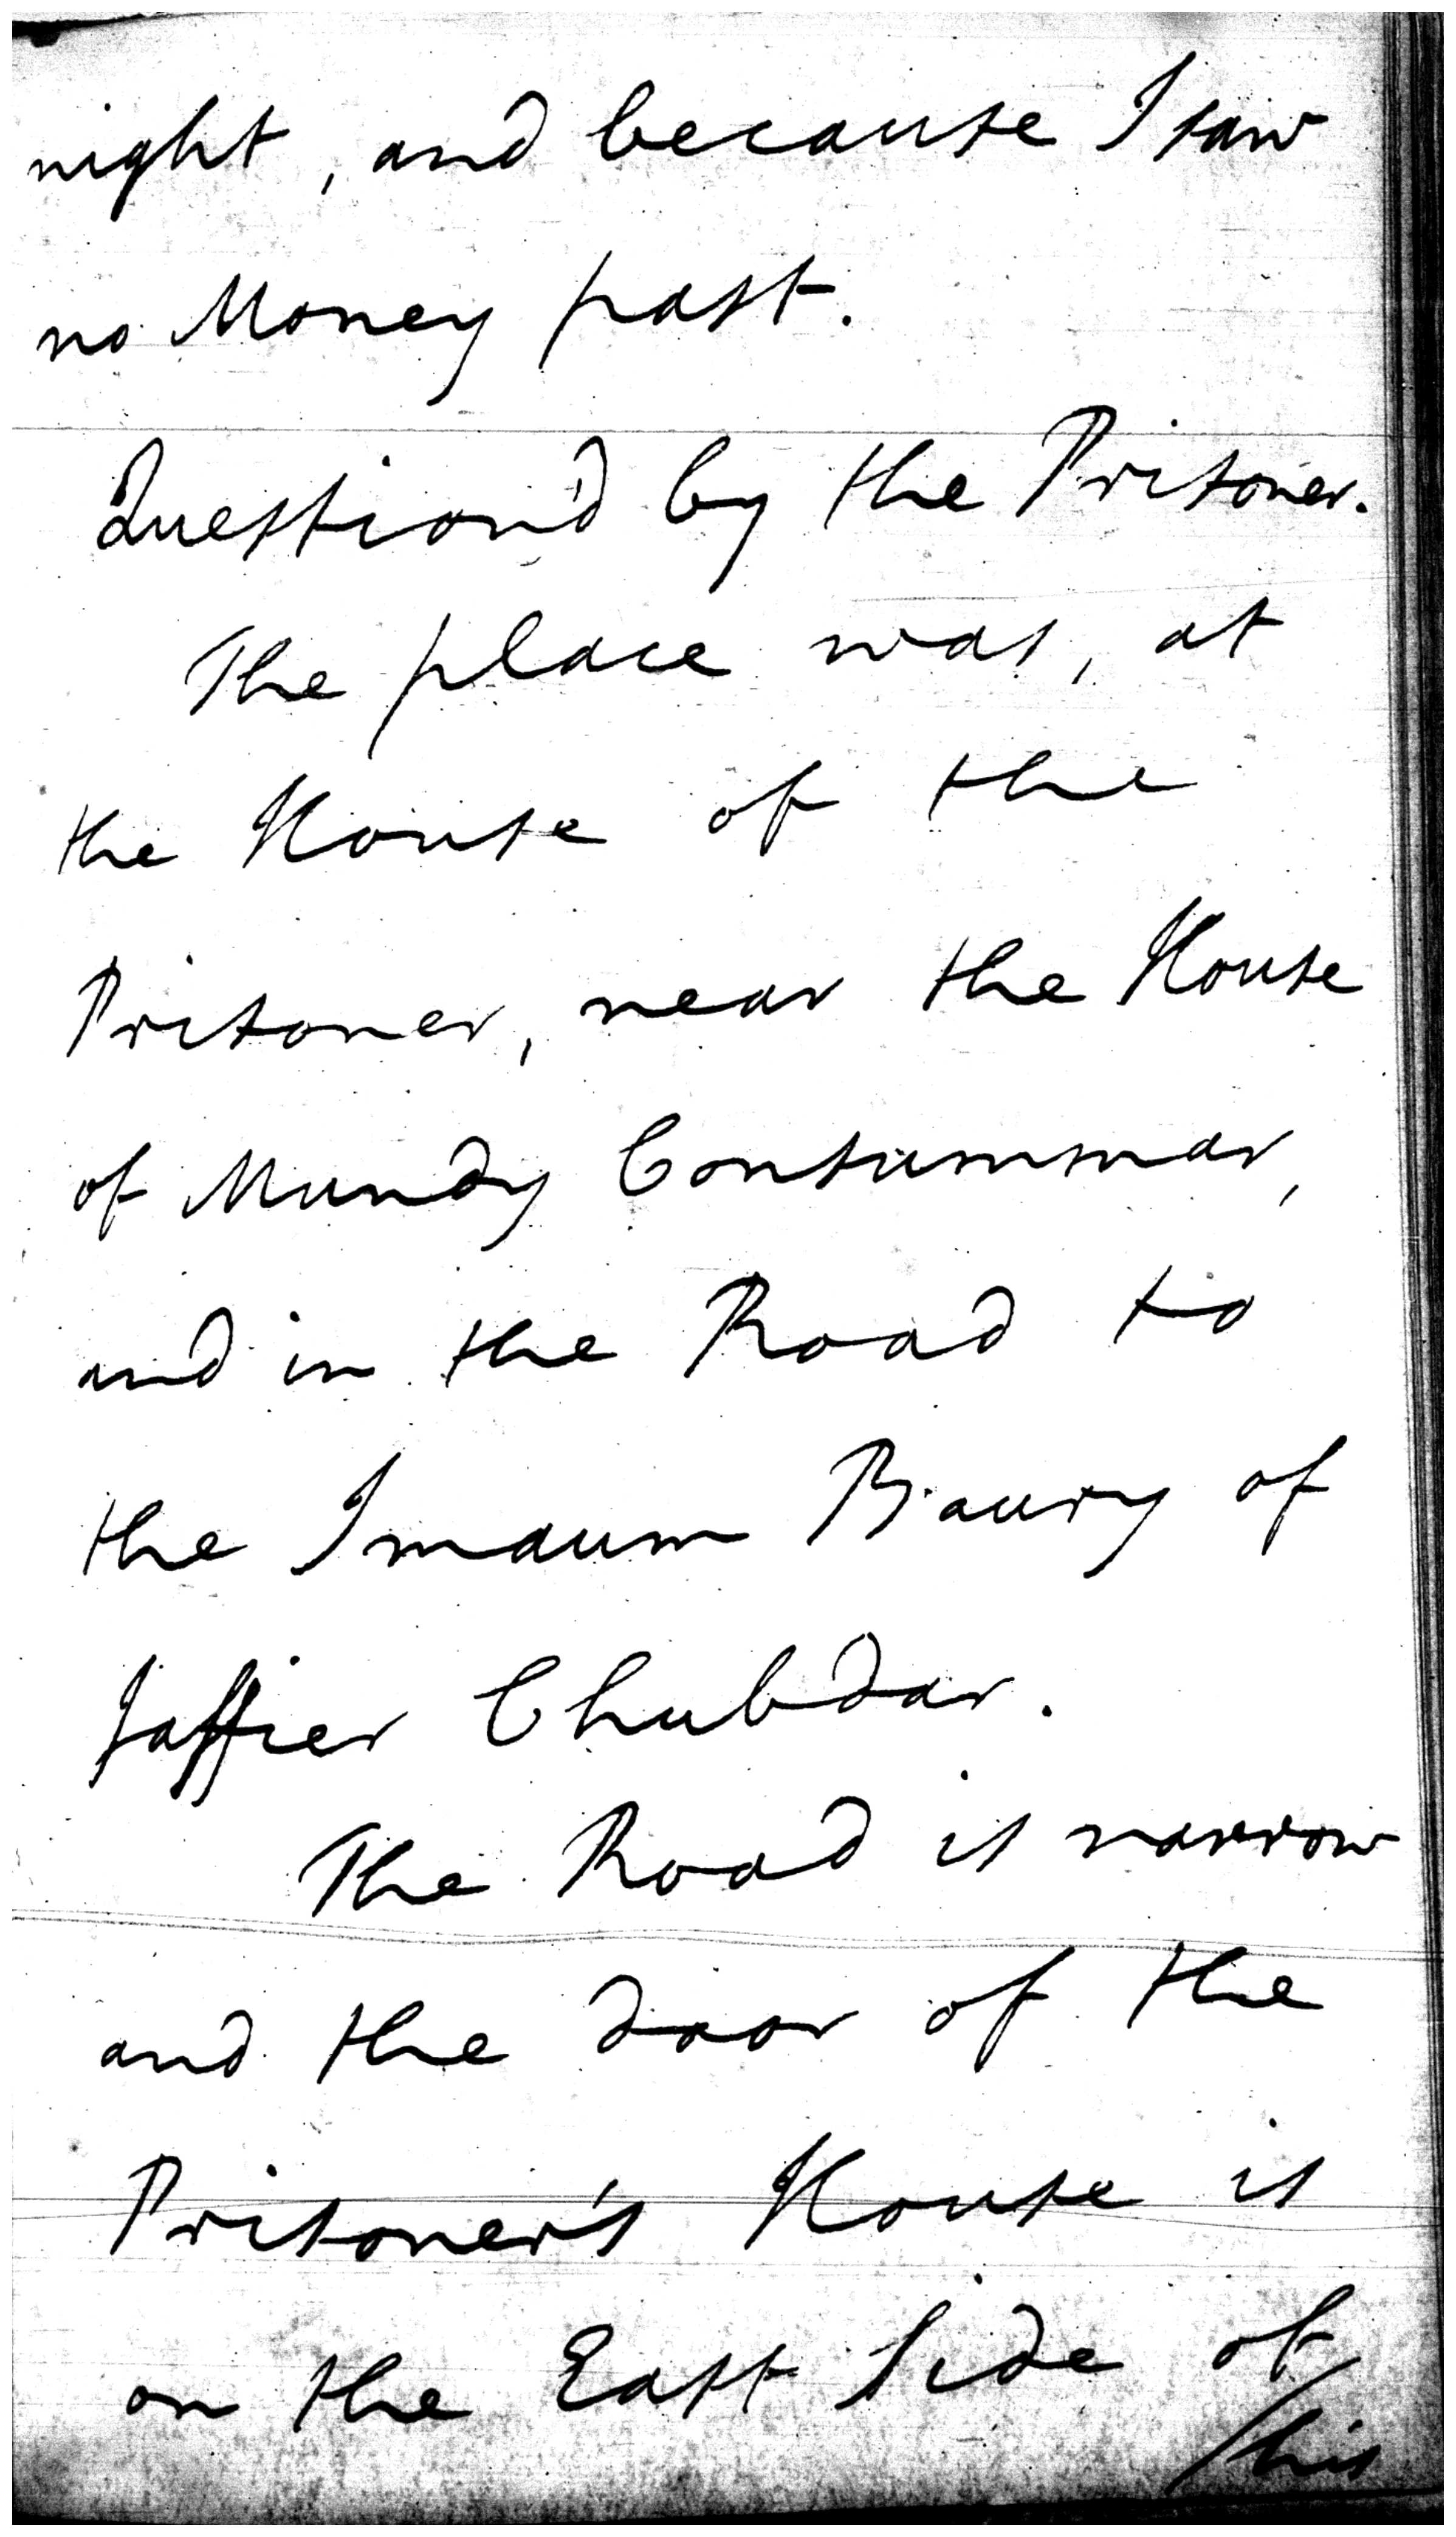 night, and because I saw
no Money past.
Question'd by the Prisoner.
The place was, at
the House of the
Prisoner, near the House
of Mundy Consummar,
and in the Road to
the Imaum Baury of
Jaffier Chubdar.
The Road is narrow
and the door of the
Prisoner's House is
on the East Side of
/his